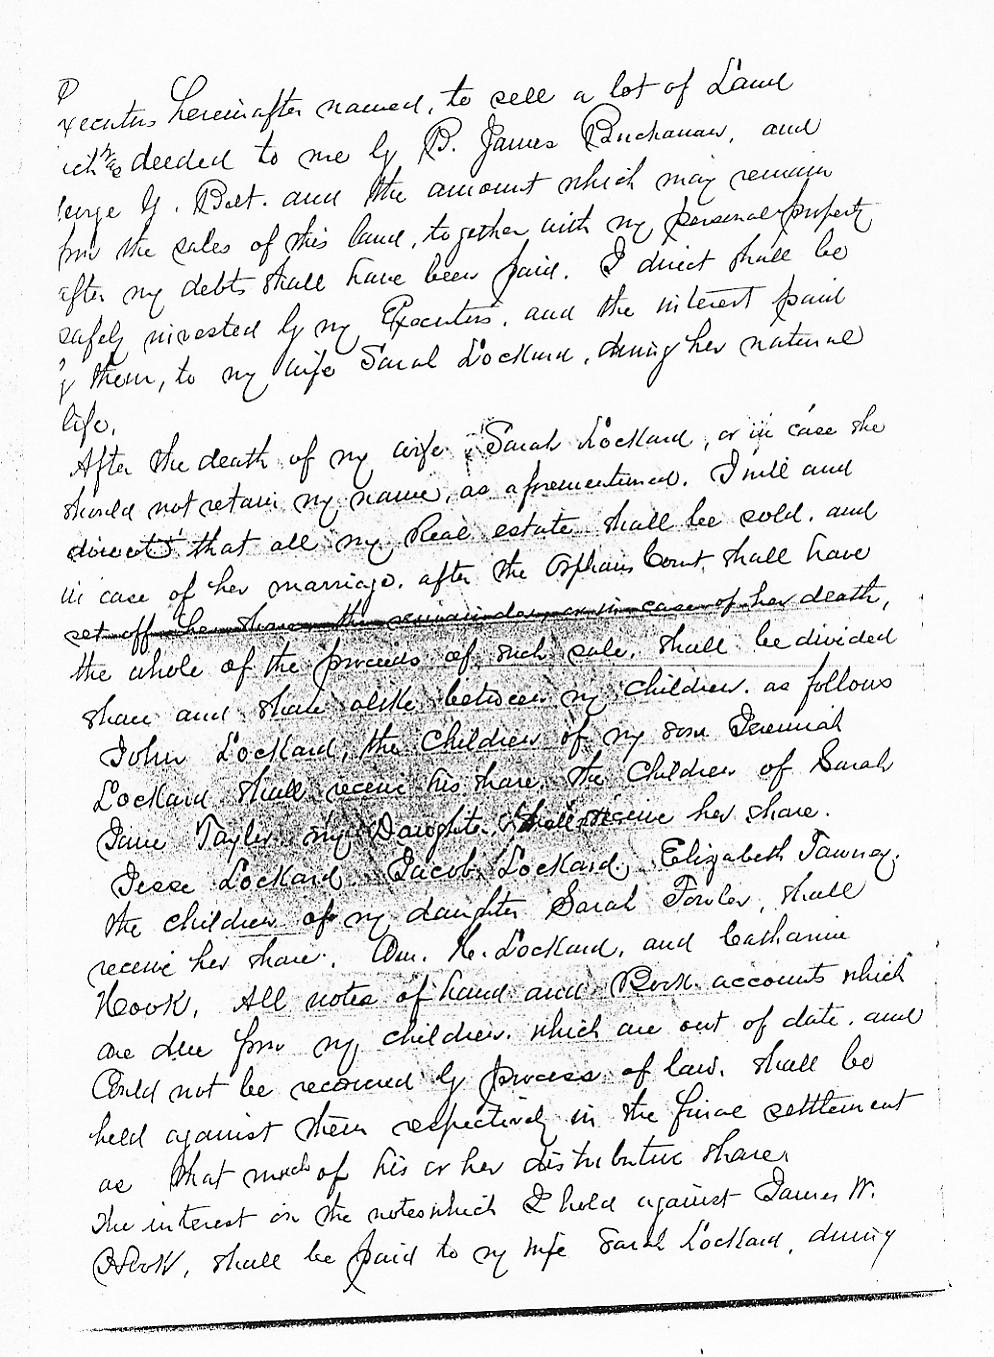 xecutors hereinafter named, to sell a lot of Land
ich was deeded to me by B. James Buchanan, and
eorge Y. Belt. and the amount which may remain
from the sales of this land, together with my personal property
after my debts shall have been paid. I direct shall be
safely invested by my Executors, and the interest paid
y them, to my wife Sarah Lockard, during her natural
life.
After the death of my wife Sarah Lockard, or in case she
should not retain my name, as aforementioned. I will and
direct that all my Real estate shall be sold. and
in case of her marriage. after the Orphans Court, shall have
set off her share the remainder, or in case of her death,
the whole of the proceeds of such sale, shall be divided
share and share alike between my children. as follows
John Lockard, the Children of my son Jeremiah
Lockard shall receive his share, the Children of Sarah
Jane Tayler my Daughter, shall receive her share.
Jesse Lockard Jacob Lockard, Elizabeth Tawney.
the children of my daughter Sarah Fowler, shall
receive her share. Wm. H. Lockard, and Catharine
Hook. All notes of hand and Book accounts which
are due from my children. which are out of date. and
Could not be recovered by process of law. shall be
held against them respectively in the final settlement
as that much of his or her distributive share.
The interest on the notes which I hold against James W.
Hook, shall be paid to my wife Sarah Lockard, during